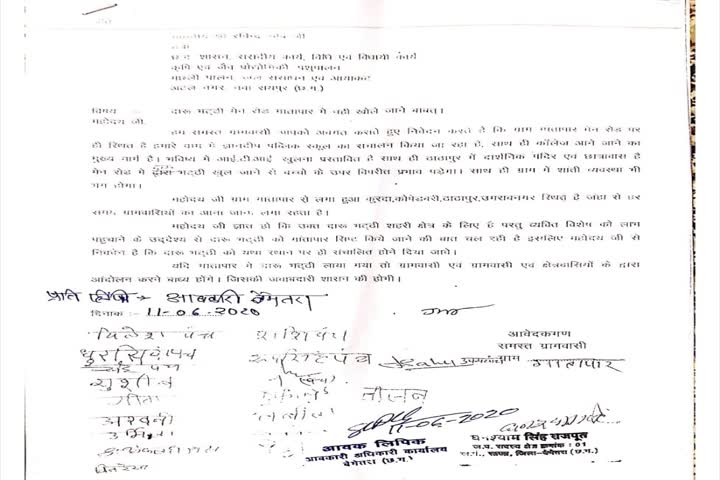 छ.ग. शासन, संसदीय कार्य, विधि एवं विधायी कार्य
कृषि एवं जैव प्रौद्योगिकी पशुपालन
मछली पालन, जल संसाधन एवं आयाकट
अटल नगर, नवा रायपुर (छ.ग.)
विषय दारू भट्ठी मेन रोड गातापार में नही खोले जाने बाबत्।
महोदय जी,
हम समस्त ग्रामवासी आपको अवगत कराते हुए निवेदन करते है कि ग्राम गातापार मेन रोड पर
ही स्थित है हमारे ग्राम में ज्ञानदीप पब्लिक स्कूल का संचालन किया जा रहा है, साथ ही कॉलेज आने जाने का
मुख्य मार्ग है। भविष्य में आई.टी.आई खुलना प्रस्तावित है साथ ही ठाठापुर में दार्शनिक मंदिर एवं छात्रावास है
मेन रोड में भट्ठी खुल जाने से बच्चो के उपर विपरीत प्रभाव पड़ेगा। साथ ही ग्राम में शांती व्यवस्था भी
भंग होगा।
महोदय जी ग्राम गातापार से लगा हुआ कुरदा,कोगेडबरी,ठाठापुर,उमरावनगर स्थित है जहां से हर
समय ग्रामवासियों का आना जाना लगा रहता है।
महोदय जी ज्ञात हो कि उक्त दारू भट्ठी शहरी क्षेत्र के लिए है परंतु व्यक्ति विशेष को लाभ
पहुचाने के उद्देश्य से दारू भट्ठी को गातापार सिप्ट किये जाने की बात चल रही है इसलिए महोदय जी से
निवेदन है कि दारू भट्ठी को यथा स्थान पर ही संचालित होने दिया जावे।
यदि गातापार में दारू भट्ठी लाया गया तो ग्रामवासी एवं ग्रामवासी एवं क्षेत्रवासियों के द्वारा
आंदोलन करने बाध्य होंगे। जिसकी जवाबदारी शासन की होगी।
प्रति लिपि → आबकारी बेमेतरा
दिनांक :- 11-06-2020
आवेदकगण
समस्त ग्रामवासी
ग्राम गातापार
सुशील
गीता
अश्वनी
11-06-2020
आवक लिपिक
आबकारी अधिकारी कार्यालय
बेमेतरा (छ.ग.)
घनश्याम सिंह राजपूत
ज.प. सदस्य क्षेत्र क्रमांक : 01
जिला-बेमेतरा (छ.ग.)